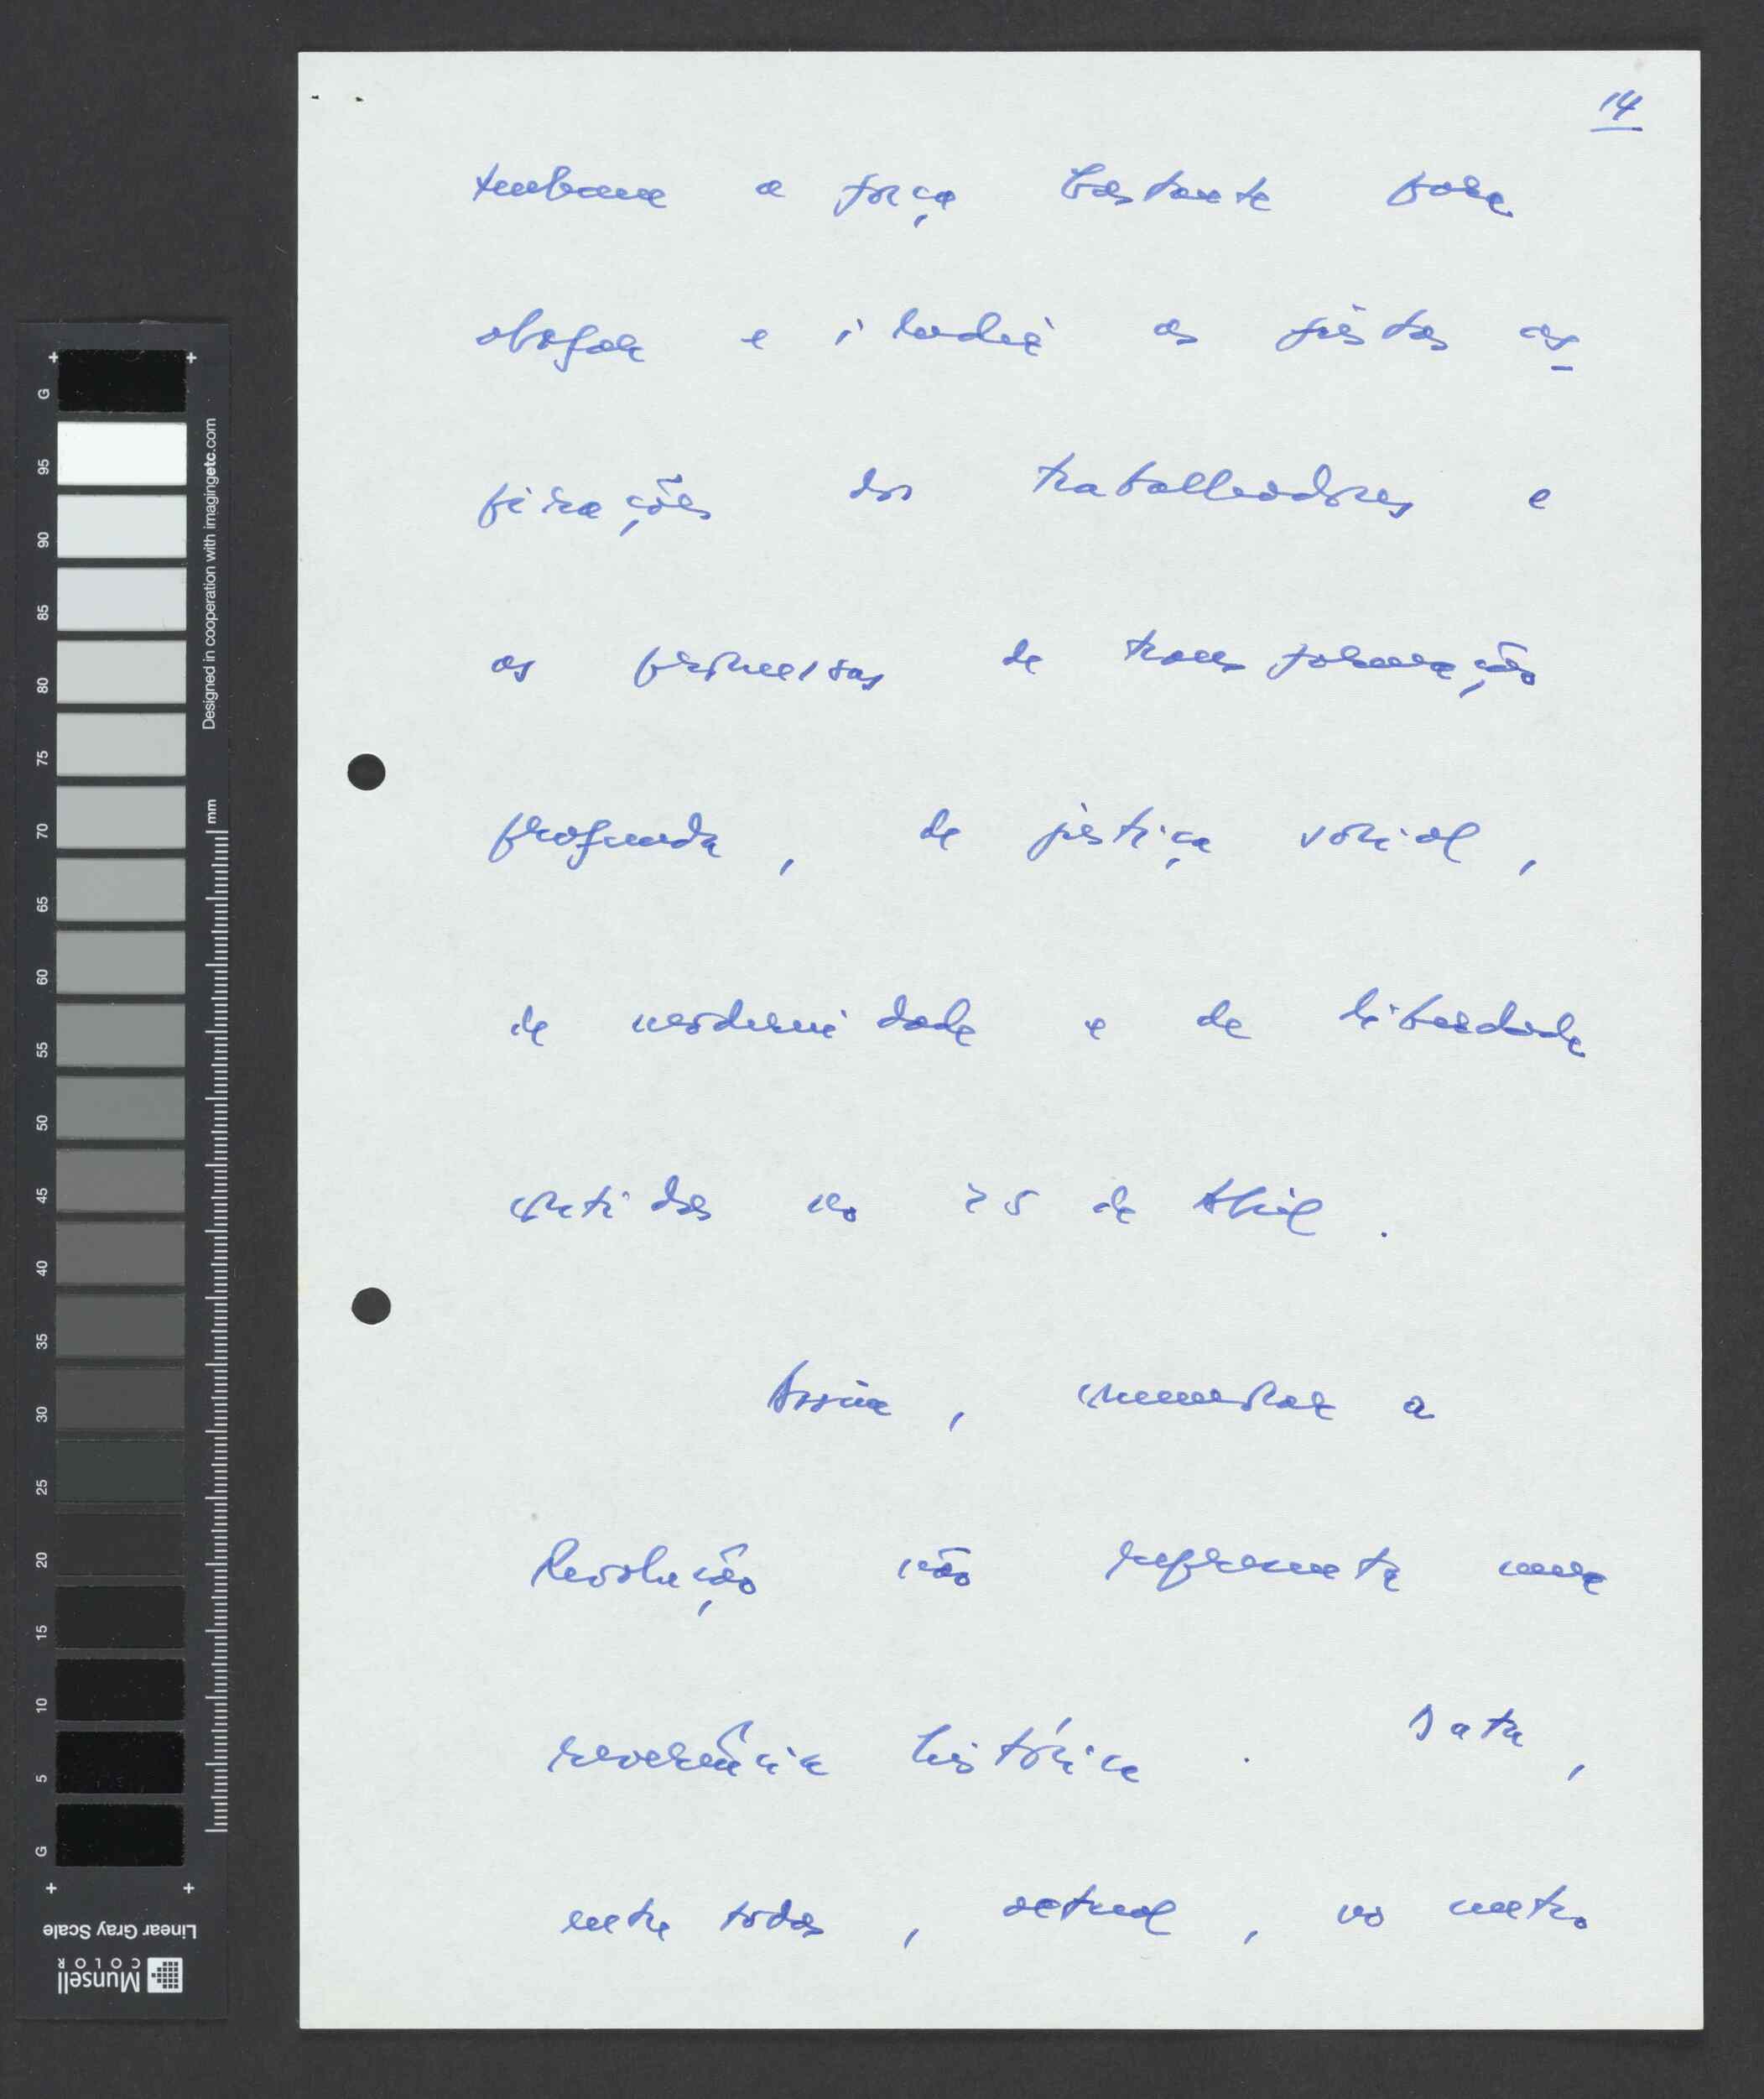 14
tenham a força bastante para
afogar e iludir as justas as-
pirações dos trabalhadores e
as promessas de transformação
profunda, de justiça social,
de modernidade e de liberdade
contidas no 25 de Abril.
Assim, comemorar a
Revolução não representa uma
reverência histórica. Data,
entre todas, actual, no nosso
Designed in cooperation with imagingetc.com
mm
G
95
90
85
80
75
70
65
60
55
50
45
40
35
30
25
20
15
10
5
G
Linear Gray Scale
Munsell
COLOR